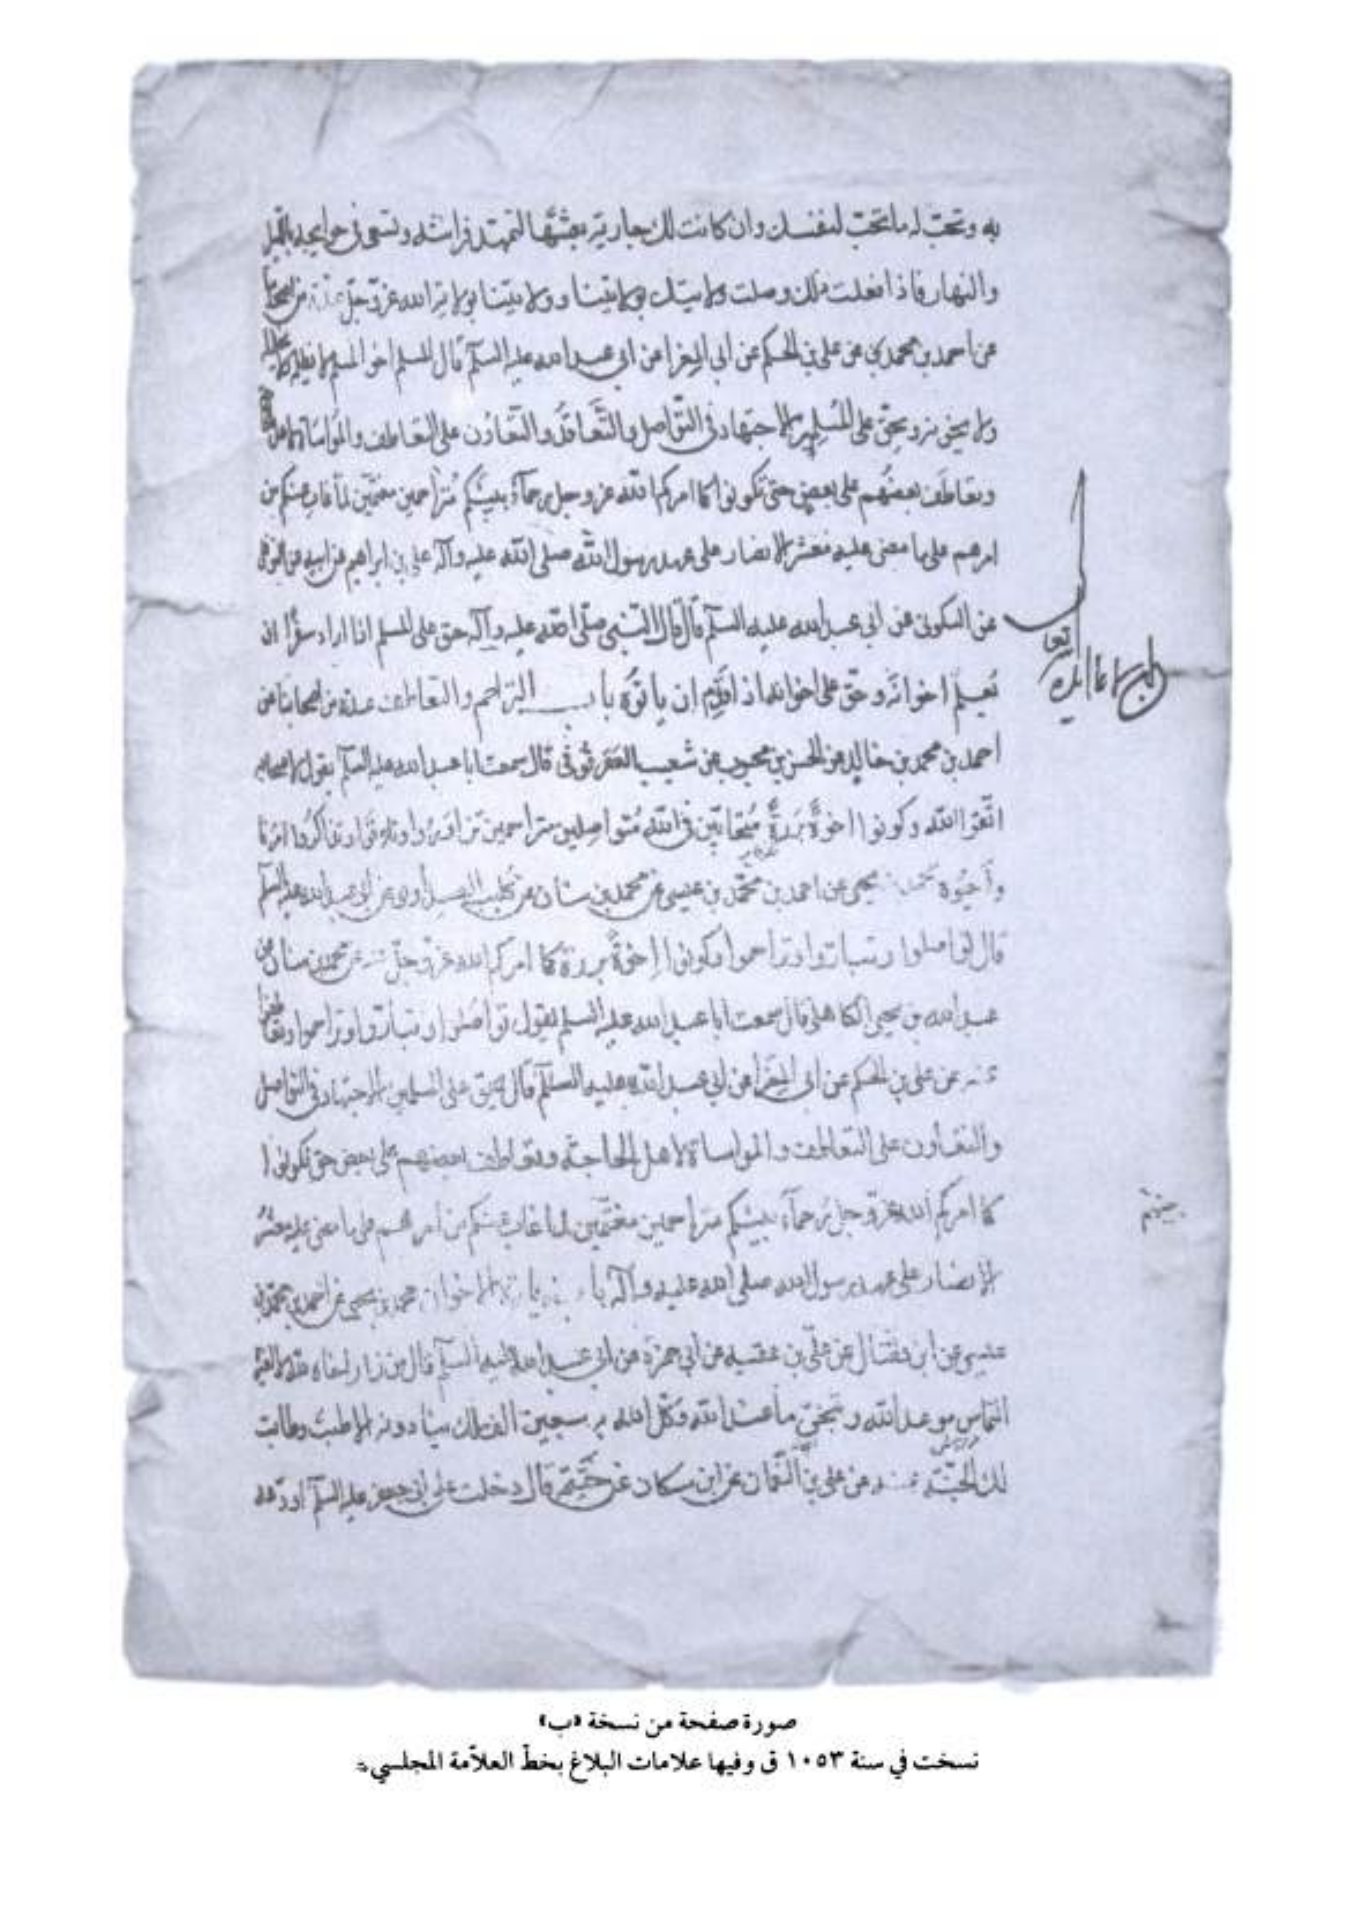 به وتحب له ما تحب لنفسك وان كانت لك جارية بعثتها لتمهد فراشه وتسعى في حوايجه بالليل
والنهار فاذا فعلت ذلك وصلت ولايتك بولايتنا وولايتنا بولاية الله عز وجل عدة من اصحابنا
عن احمد بن محمد عن علي بن الحكم عن ابي المغرا عن ابي عبد الله عليه السلم قال المسلم اخو المسلم لا يظلمه
ولا يخونه ويحق على المسلمين الاجتهاد في التواصل والتعاقد والتعاون على التعاطف والمواساة لاهل
وتعاطف بعضهم على بعض حتى تكونوا كما امركم الله عز وجل رحمآء بينكم متراحمين مغتمين لما غاب عنكم من
امرهم على ما مضى عليه معشر الانصار على عهد رسول الله صلى الله عليه وآله علي بن ابراهيم عن ابيه عن النوفلي
عن السكوني عن ابي عبد الله عليه السلم قال قال النبي صلى الله عليه وآله حق على المسلم اذا اراد سفرا ان
يعلم اخوانه وحق على اخوانه اذا قدم ان يأتوه باب التراحم والتعاطف عدة من اصحابنا عن
احمد بن محمد بن خالد عن الحسن بن محبوب عن شعيب العقرقوفي قال سمعت ابا عبد الله عليه السلم يقول لاصحابه
اتقوا الله وكونوا اخوة بررة متحابين في الله متواصلين متراحمين تزاوروا وتلاقوا وتذاكروا امرنا
وأحيوه محمد بن يحيى عن احمد بن محمد بن عيسى عن محمد بن سنان عن كليب الصيداوي عن ابي عبد الله عليه السلم
قال تواصلوا وتباروا وتراحموا وكونوا إخوة بررة كما امركم الله عز وجل عنه عن محمد بن سنان عن
عبد الله بن يحيى الكاهلي قال سمعت ابا عبد الله عليه السلم يقول تواصلوا وتباروا وتراحموا وتعاطفوا
عنه عن علي بن الحكم عن ابي المغرا عن ابي عبد الله عليه السلم قال يحق على المسلمين الاجتهاد في التواصل
والتعاون على التعاطف والمواساة لاهل الحاجة وتعاطف بعضهم على بعض حتى تكونوا
كما امركم الله عز وجل رحمآء بينكم متراحمين مغتمين لما غاب عنكم من امرهم على ما مضى عليه معشر
الانصار على عهد رسول الله صلى الله عليه وآله باب زيارة الاخوان محمد بن يحيى عن احمد بن محمد بن
عيسى عن ابن فضال عن علي بن عقبة عن ابي حمزة عن ابي عبد الله عليه السلم قال من زار اخاه لله لا لغيره
التماس موعد الله وتنجز ما عند الله وكل الله به سبعين الف ملك ينادونه الا طبت وطابت
لك الجنة عنه عن علي بن النعمان عن ابن مسكان عن خيثمة قال دخلت على ابي جعفر عليه السلم اودعه
صورة صفحة من نسخة «ب»
نسخت في سنة ١٠٥٣ ق وفيها علامات البلاغ بخطّ العلاّمة المجلسي